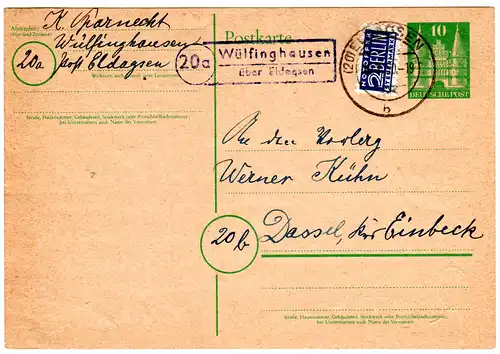 Absender:
K. Sparnecht
Wülfinghausen
20a Post Eldagsen
Straße, Hausnummer, Gebäudeteil, Stockwerk oder Postschließfachnummer,
bei Untermietern auch Name des Vermieters
20a Wülfinghausen
über Eldagsen
Postkarte
NOTOPFER
2 BERLIN
STEUERMARKE
(20) ELDAGSEN
b
10
DEUTSCHE POST
An den
Werner Kühn
20b Dassel, Krs Einbeck
Straße, Hausnummer, Gebäudeteil, Stockwerk oder Postschließfachnummer,
bei Untermietern auch Name des Vermieters